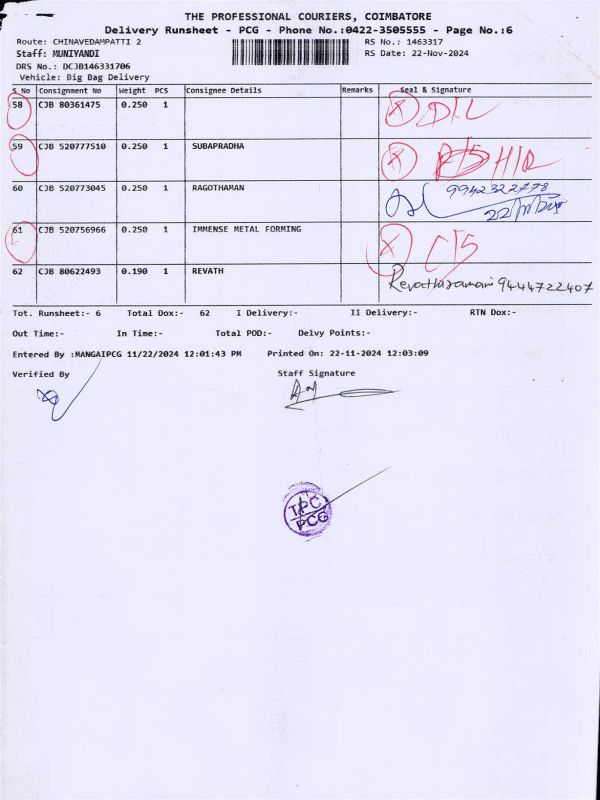 THE PROFESSIONAL COURIERS, COIMBATORE
Delivery Runsheet - PCG - Phone No.:0422-3505555 - Page No.:6
Route: CHINAVEDAMPATTI 2 RS No.: 1463317
Staff: MUNIYANDI RS Date: 22-Nov-2024
DRS No.: DCJB146331706
Vehicle: Big Bag Delivery
S No Consignment No Weight PCS Consignee Details Remarks Seal & Signature
58 CJB 80361475 0.250 1 X D/L
59 CJB 520777510 0.250 1 SUBAPRADHA X
60 CJB 520773045 0.250 1 RAGOTHAMAN 9942322778
61 CJB 520756966 0.250 1 IMMENSE METAL FORMING X
62 CJB 80622493 0.190 1 REVATH Revathiramani 9444722407
Tot. Runsheet:- 6 Total Dox:- 62 I Delivery:- II Delivery:- RTN Dox:-
Out Time:- In Time:- Total POD:- Delvy Points:-
Entered By :MANGAIPCG 11/22/2024 12:01:43 PM Printed On: 22-11-2024 12:03:09
Verified By Staff Signature
TPC
PCG